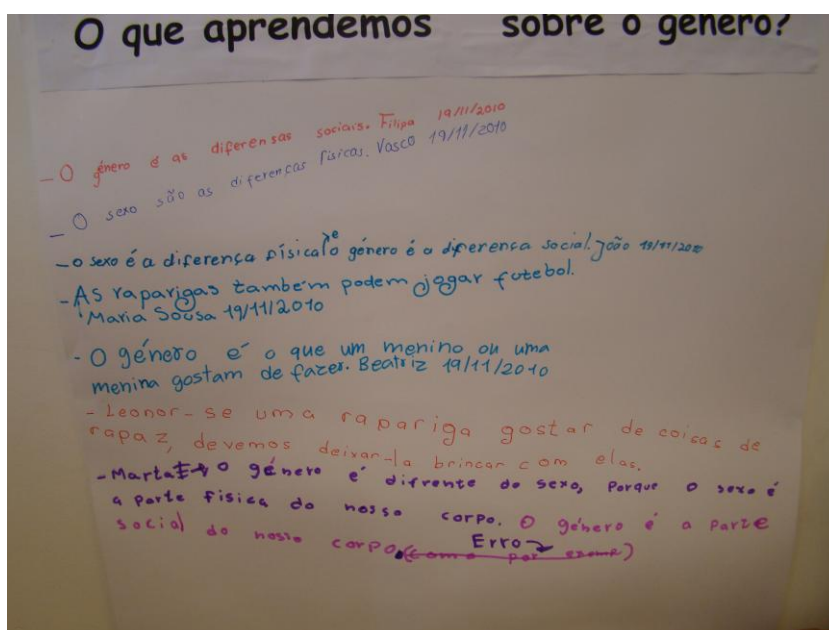 O que aprendemos sobre o género?
- O género é as diferensas sociais. Filipa 19/11/2010
- O sexo são as diferenças físicas. Vasco 19/11/2010
- o sexo é a diferença física e o género é a diferença social. João 19/11/2010
- As raparigas também podem jogar futebol.
Maria Sousa 19/11/2010
- O género é o que um menino ou uma
menina gostam de fazer. Beatriz 19/11/2010
- Leonor - se uma rapariga gostar de coisas de
rapaz, devemos deixar-la brincar com elas.
- Marta O género é difrente do sexo, Porque o sexo é
a parte física do nosso corpo. O género é a parte
social do nosso corpo. Erro
(como por exemp)